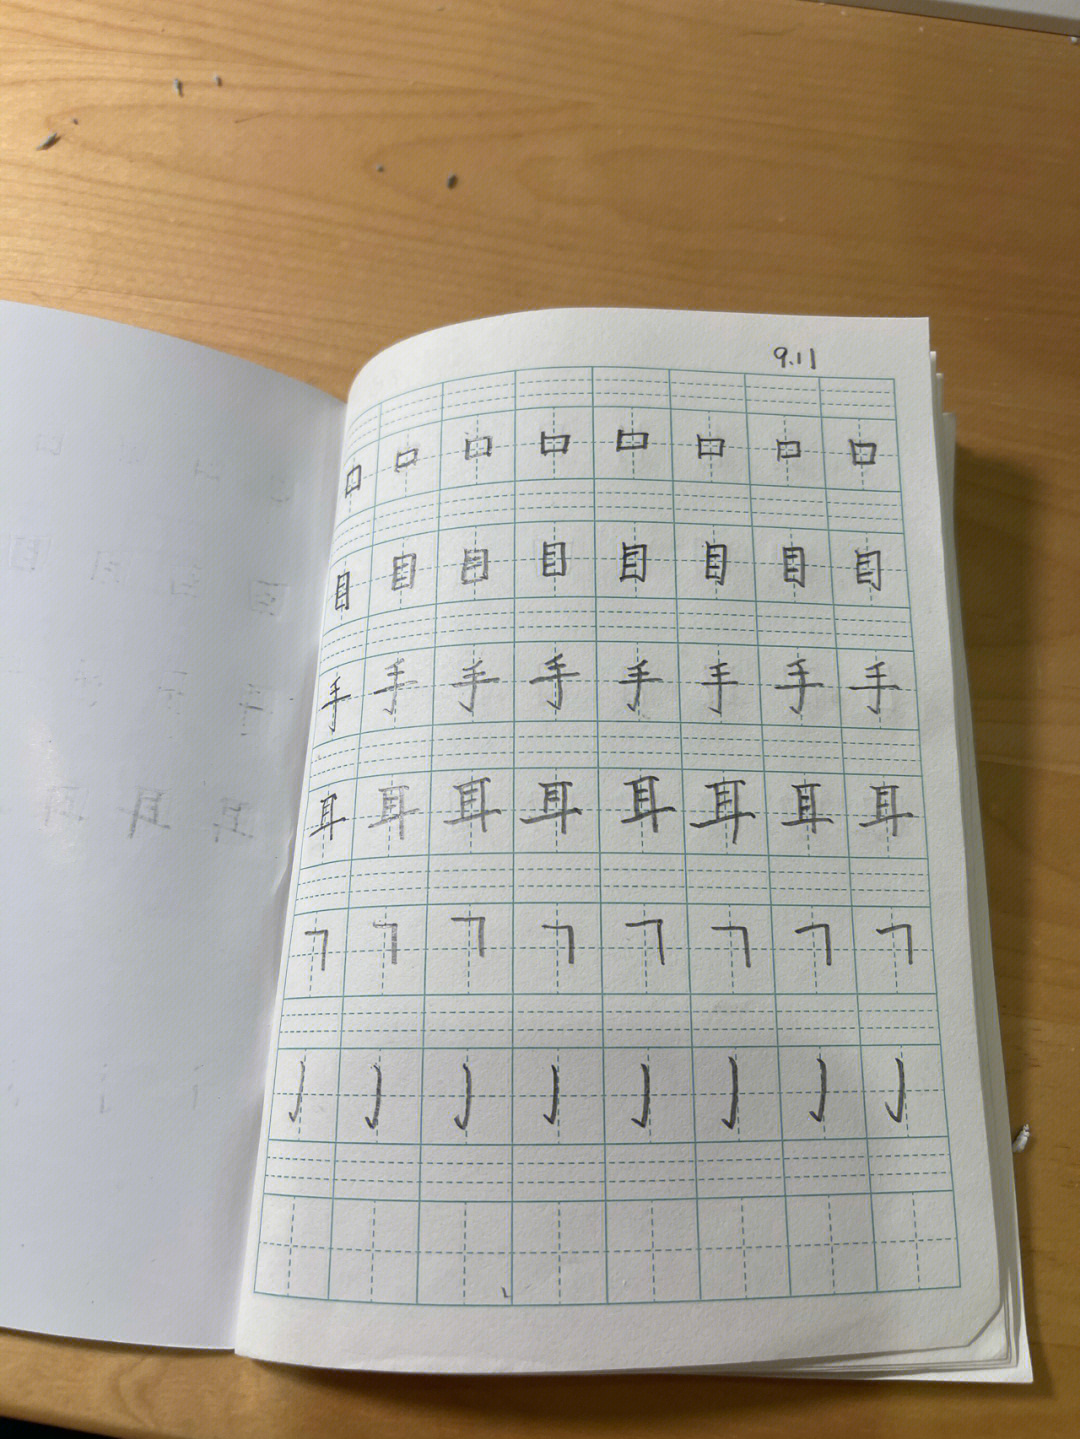 9.11
口口口口口口口口
目目目目目目目目
手手手手手手手手
耳耳耳耳耳耳耳耳
㇕㇕㇕㇕㇕㇕㇕㇕
亅亅亅亅亅亅亅亅